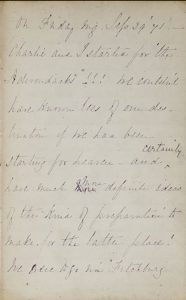 On Friday mg. Sep. 29 '71 –
Charlie and I started for "the
Adirondacks"!!! We couldn't
have known less of our des-
tination if we had been
starting for heaven – and certainly
have much more definite ideas
of the kind of preparation to
make for the latter place!
We